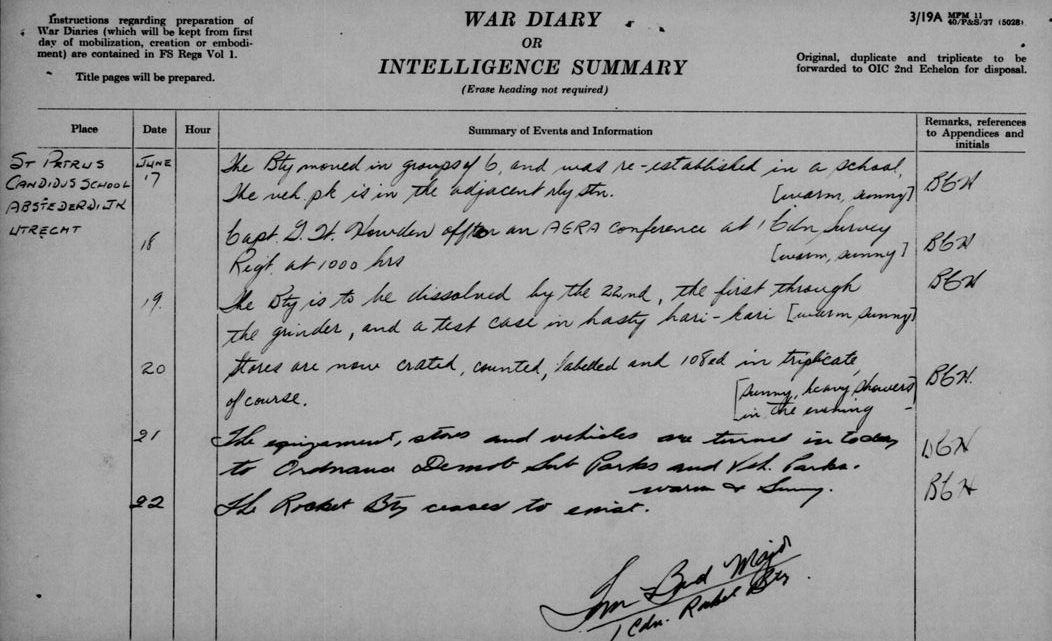 Instructions regarding preparation of
War Diaries (which will be kept from first
day of mobilization, creation or embodi-
ment) are contained in FS Regs Vol 1.
Title pages will be prepared.
WAR DIARY
OR
INTELLIGENCE SUMMARY
(Erase heading not required)
3/19A MFM 11
40/P&S/37 (5028)
Original, duplicate and triplicate to be
forwarded to OIC 2nd Echelon for disposal.
Place Date Hour Summary of Events and Information Remarks, references
to Appendices and
initials
ST PETRUS
CANDIDUS SCHOOL
ABSTEDERDIJK
UTRECHT
JUNE
17 The Bty moved in groups of 6, and was re-established in a school,
The veh pk is in the adjacent Rly Stn. [warm, sunny] BGH
18 Capt. G. H. Howden an AGRA conference at 1 Cdn Survey
Regt. at 1000 hrs [warm, sunny] BGH
19. The Bty is to be dissolved by the 22nd, the first through BGH
the grinder, and a test case in hasty hari-kari [warm sunny]
20 Stores are now crated, counted, labelled and 108ed in triplicate, BGH.
of course. [sunny, heavy showers
in the evening -
21 The equipment, stores and vehicles are turned in today BGH
to Ordnance Demob Sub Parks and Veh. Parks.
warm & Sunny.
22 The Rocket Bty ceases to exist. BGH
Major
1 Cdn. Rocket Bty.